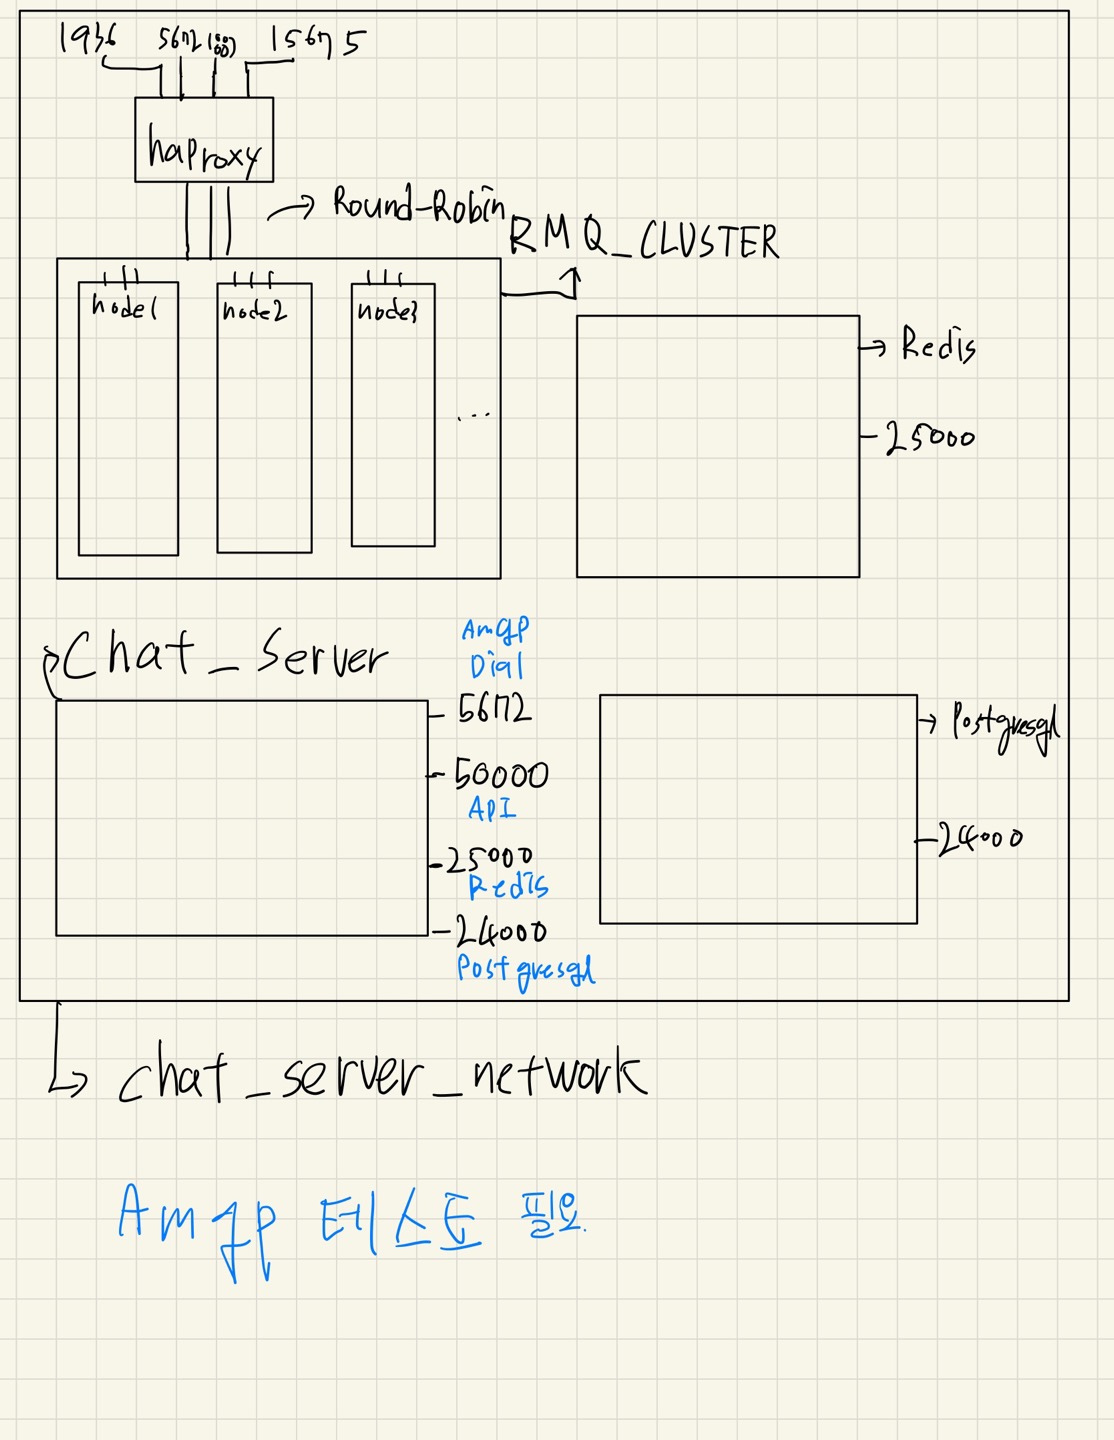 1936 5672 15675
haproxy
Round-Robin
RMQ_CLUSTER
node1 node2 node3
...
Redis
25000
Chat_Server
Amqp
Dial
5672
50000
API
25000
Redis
24000
Postgresql
Postgresql
24000
chat_server_network
Amqp 테스트 필요.